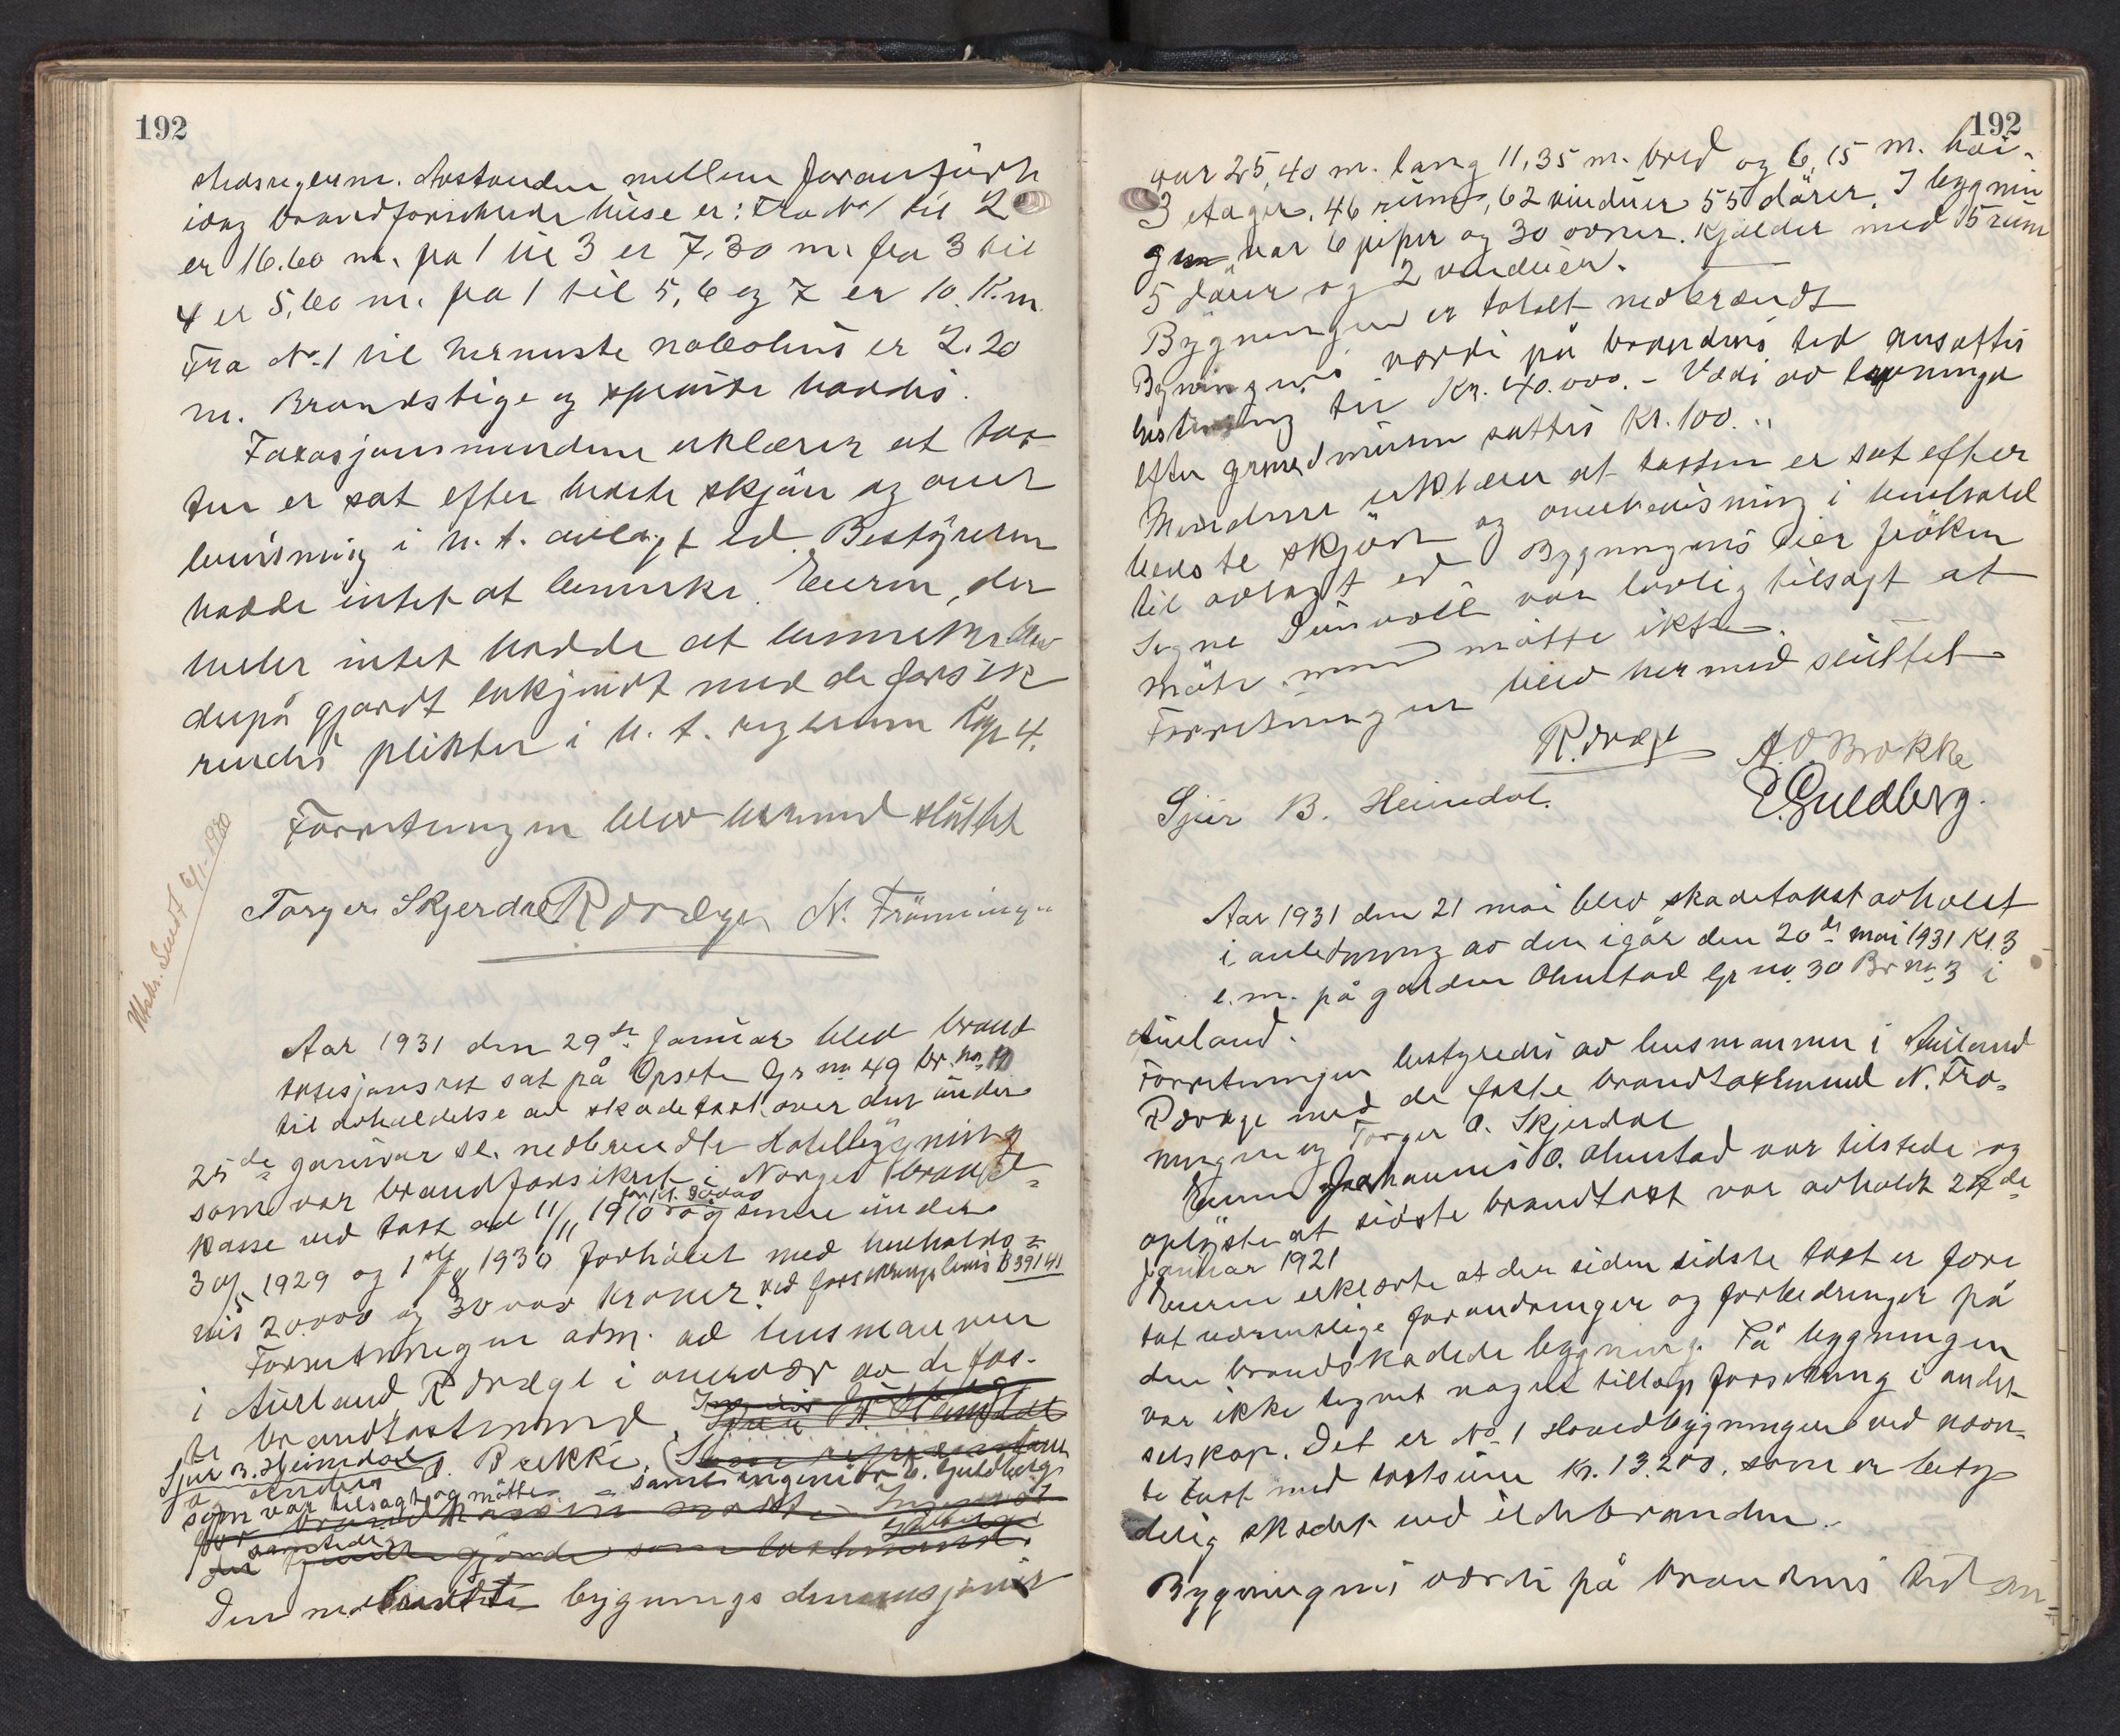 192
stedsreglem. Avstanden mellem foranførte
idag brandforsikrede huse er: Fra No 1 til 2
er 16.60 m. fra 1 til 3 er 7,30 m. fra 3 til
4 er 5,60 m. fra 1 til 5, 6 og 7 er 10 K.m.
Fra No 1 til nermeste nabohus er 2.20
m. Brandstige og sprøite haddes.
Taxasjonsmendene erklærer at tax
ten er sat efter bedste skjøn og over
bevisning i h. t. avlagt ed. Bestyreren
hadde intet at bemerke. Eieren, der
heller intet hadde at bemerke blev
derpå gjordt bekjendt med de forsik
redes plikter i h. t. reglem Kap 4.
Forretningen blev hermed sluttet
Torger Skjerdal R Dræge N. Frønningen
Utskr. Sendt 6/1-1930
Aar 1931 den 29de Januar blev brand
taxsjonsret sat på Opsete Gr no 49 br. no
til avholdelse av skadetaxt over den under
25de januar sl. nedbrendte Hotelbygning
som var brandforsikret i Norges brand=
kasse ved taxt ad 11/11 1910 for kr. og senere under
30/5 1929 og 1ste 1930 forhøiet med henholds=
vis 20000 og 30000 kroner. ved forsikringsbevis B 39141
Forretningen adm. ad lensmannen
i Aurland R Dræge i overvær av de fas-
te brandtaxtmend
Sjur B. Heimdal Brekke.
og samt ingeniør E. Guldberg
som var tilsagt og møtte
samtede
Den nedbrendte bygnings dimensjoner
192
var 25,40 m. lang 11,35 m. bred og 6,15 m. høi.
3 etager. 46 rum, 62 vinduer 55 dører. I bygnin
gen var 6 piper og 30 ovner. Kjelder med 5 rum
5 dører og 2 vinduer.
Bygningen er totalt nedbrendt
Bygningens værdi på brandens tid ansattes
til Kr. 40.000.- Vædi av
efter grundmuren sattes Kr. 100.
Mendene erklærer at taxten er sat efter
bedste skjøn og overbevisning i henhold
til avlagt ed Bygningens eier frøken
Signe Sunvoll var lovlig tilsagt at
møte men møtte ikke.
Forretningen blev hermed sluttet
R. Dræge A. O. Brekke
Sjur B. Heimdal. E. Guldberg.
Aar 1931 den 21 mai blev skadetakst avholdt
i anledning av den igår den 20de mai 1931 Kl. 3
e.m. på garden Ohnstad Gr no 30 Br no 3 i
Aurland.
Forretningen bestyredes av lensmannen i Aurland
R Dræge med de faste brandtaxtmend N. Frø=
ningen og Torger O. Skjerdal
Eieren Johannes O. Ohnstad var tilstede og
oplyste at sidste brandtaxt var avholdt 27de
januar 1921
Eieren erklærte at der siden sidste taxt er fore
tat væsentlige forandringer og forbedringer på
den brandskadede bygning. På bygningen
var ikke tegnet nogen tillægsforsikring i andet
selskap. Det er No 1 Hovedbygningen ved nævn=
te taxt med taxtsum Kr. 13.200. som er bety
delig skadet ved ildebranden.
Bygningens værdi på brandens tid an=